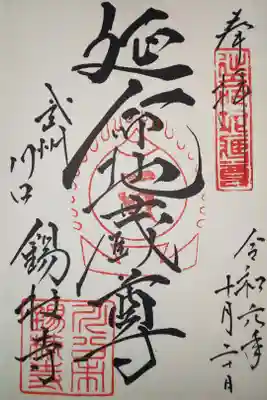 奉拝
延命地蔵尊
武州
川口
錫杖寺
令和六年
十月二十日